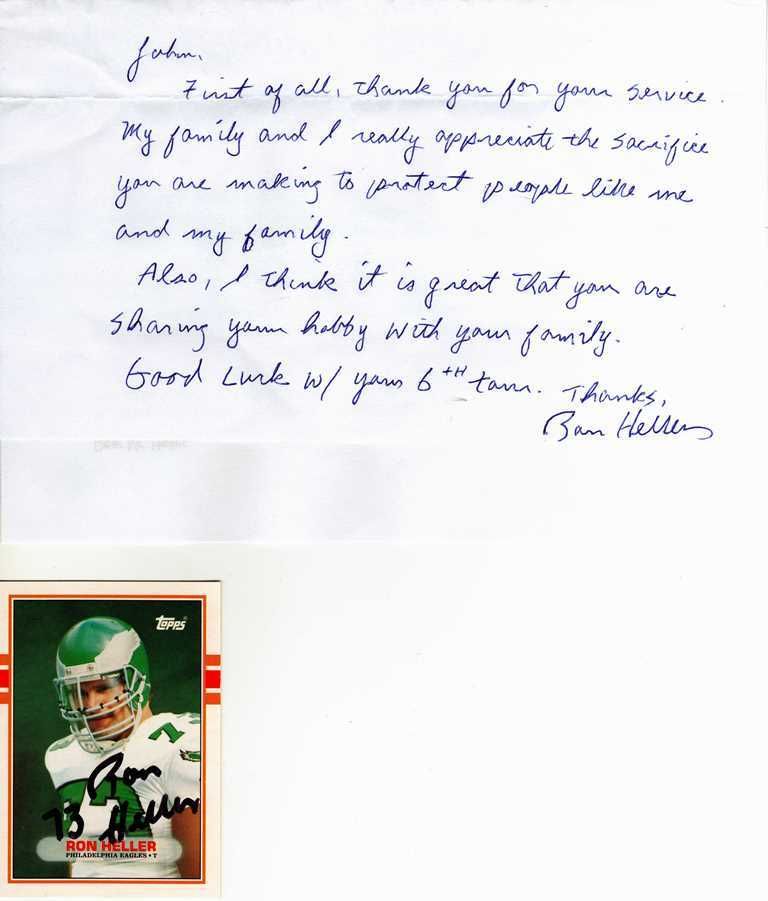 John,
First of all, thank you for your service.
My family and I really appreciate the sacrifice
you are making to protect people like me
and my family.
Also, I think it is great that you are
sharing your hobby with your family.
Good Luck w/ your 6TH tour. Thanks,
Ron Heller
topps
7
Ron
73 Heller
RON HELLER
PHILADELPHIA EAGLES • T